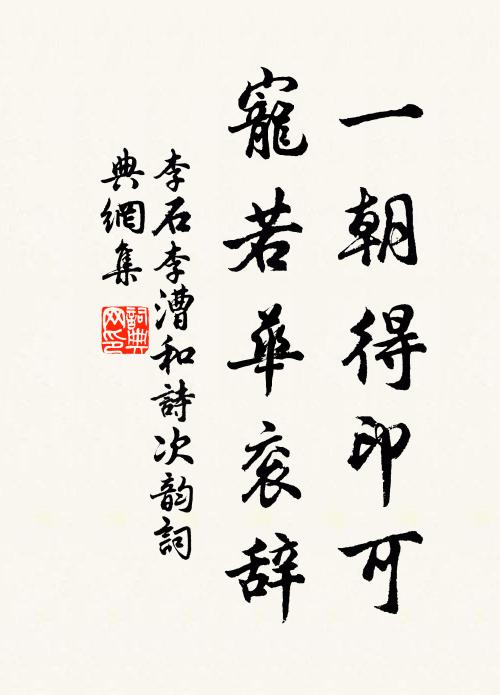 一朝得印可
寵若華衮辞
李石李漕和詩次韵詞
典網集
詞典网印